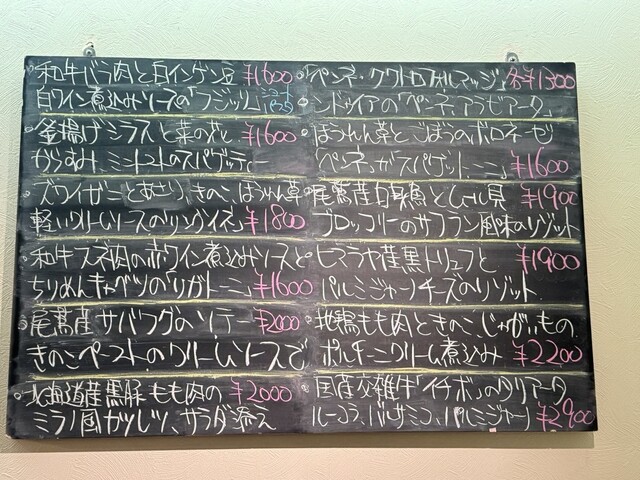 和牛バラ肉と白インゲン豆 ¥1600
白ワイン煮込みソースの「フジッリ」ショートパスタ
釜揚げシラスと菜の花 ¥1600
からすみ、ミニトマトのスパゲッティー
ズワイガニとあさり、きのこ、ほうれん草
軽いクリームソースのリングイネ ¥1800
和牛スネ肉の赤ワイン煮込みソースと
ちりめんキャベツの「リガトーニ」 ¥1600
尾鷲産サバフグのソテー ¥2000
きのこペーストのクリームソースで
北海道産黒豚もも肉の ¥2000
ミラノ風カツレツ、サラダ添え
「ペンネ・クワトロフォルマッジ」 各¥1300
ンドゥイアの「ペンネ、アラビアータ」
ほうれん草とごぼうのボロネーゼ
「ペンネ」か「スパゲットーニ」 ¥1600
尾鷲産白身魚とムール貝 ¥1900
ブロッコリーのサフラン風味のリゾット
ヒマラヤ産黒トリュフと ¥1900
パルミジャーノチーズのリゾット
地鶏もも肉ときのこ、じゃがいもの
ポルチーニクリーム煮込み ¥2200
国産交雑牛「イチボ」のタリアータ
ルーコラ、バルサミコ、パルミジャーノ ¥2900